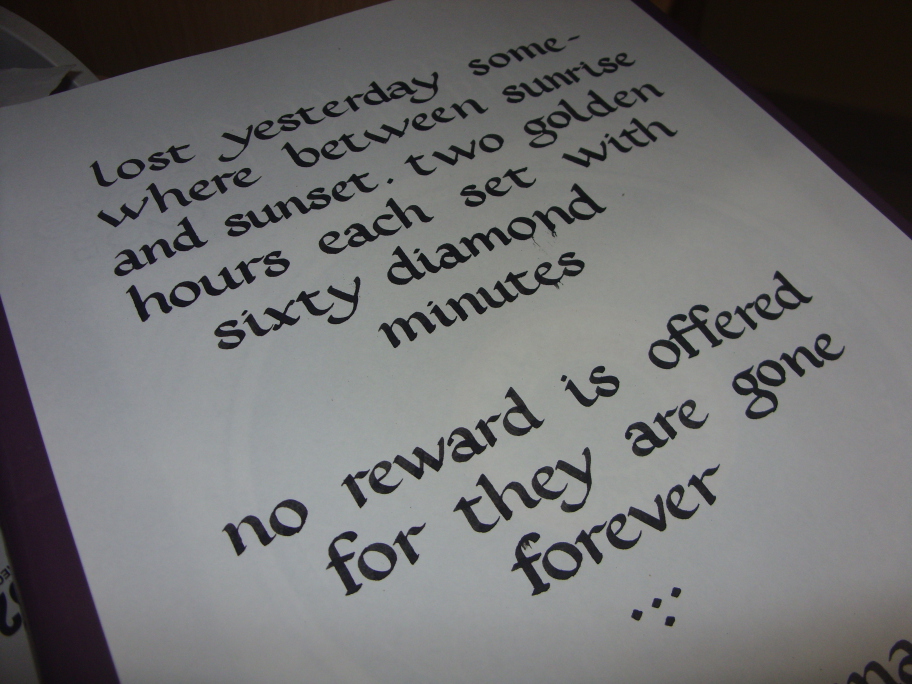 lost yesterday some-
where between sunrise
and sunset. two golden
hours each set with
sixty diamond
minutes
no reward is offered
for they are gone
forever